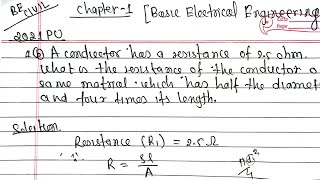 B.E. CIVIL
Chapter-1 [Basic Electrical Engineering
2021 PU
Q. A conductor has a resistance of 2.5 ohm.
What is the resistance of the conductor o
same matrial which has half the diamet
and four times its length.
Solution
Resistance (R₁) = 2.5 Ω
∵ R = ρl
A